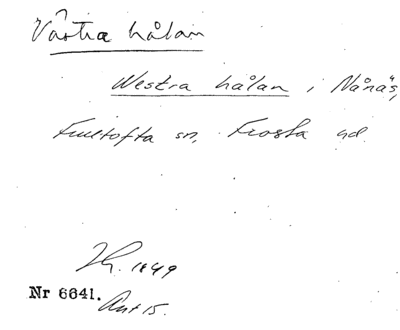 Västra hålan
Westra hålan i Nånäs,
Fulltofta sn, Frosta hd.
1849
Nr 6641.
Ant 15.